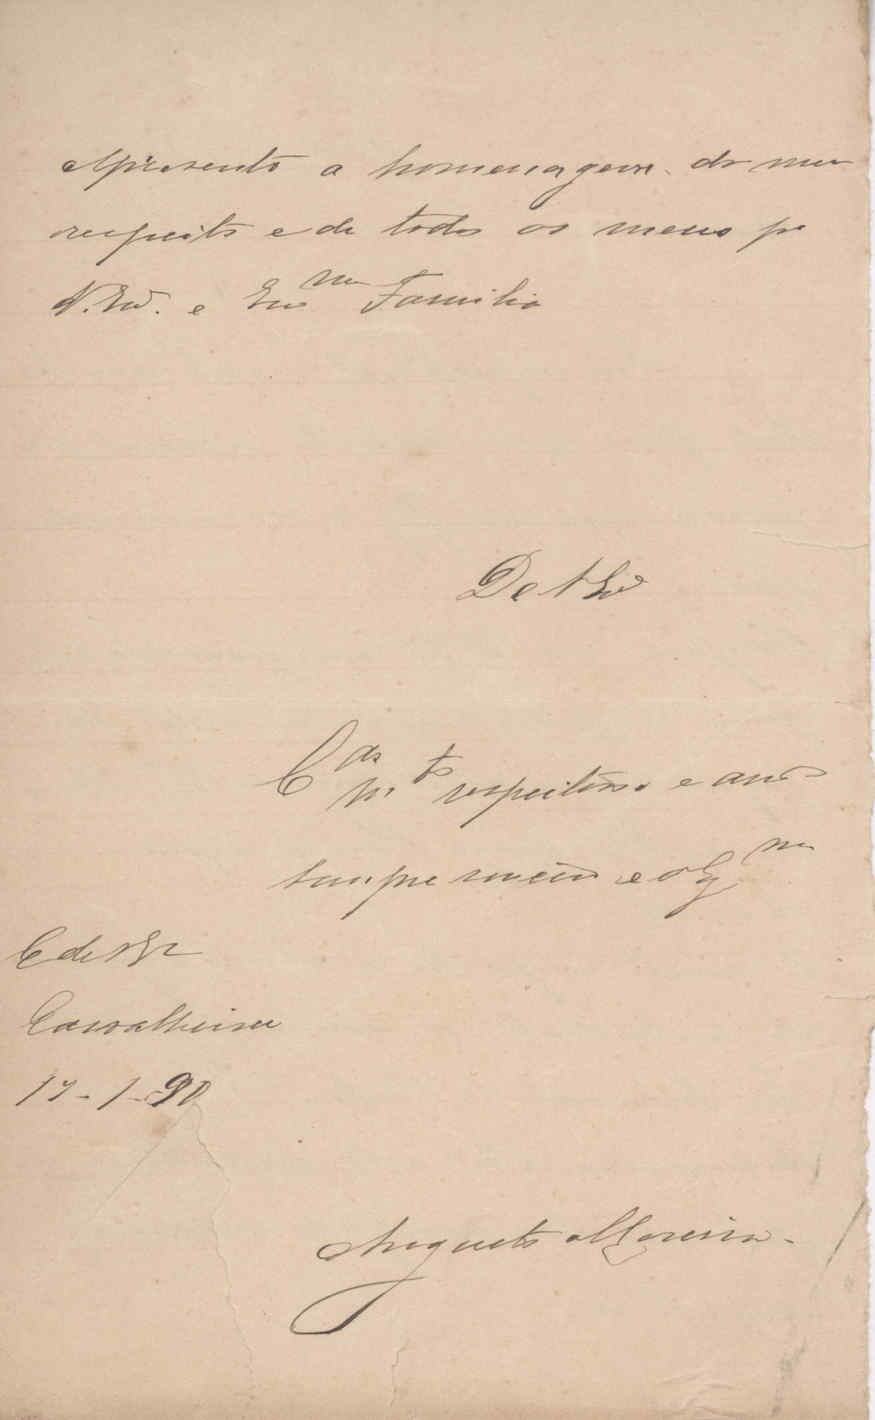 Apresento a homenagem do meu
respeito e de todos os meus pª
V. Exª. e Exma Familia
De V Exª
Cdª mto respeitoso e amº
sempre e obgmo
C de V Exª
Carvalheira
17-1-90
Augusto Moreira.